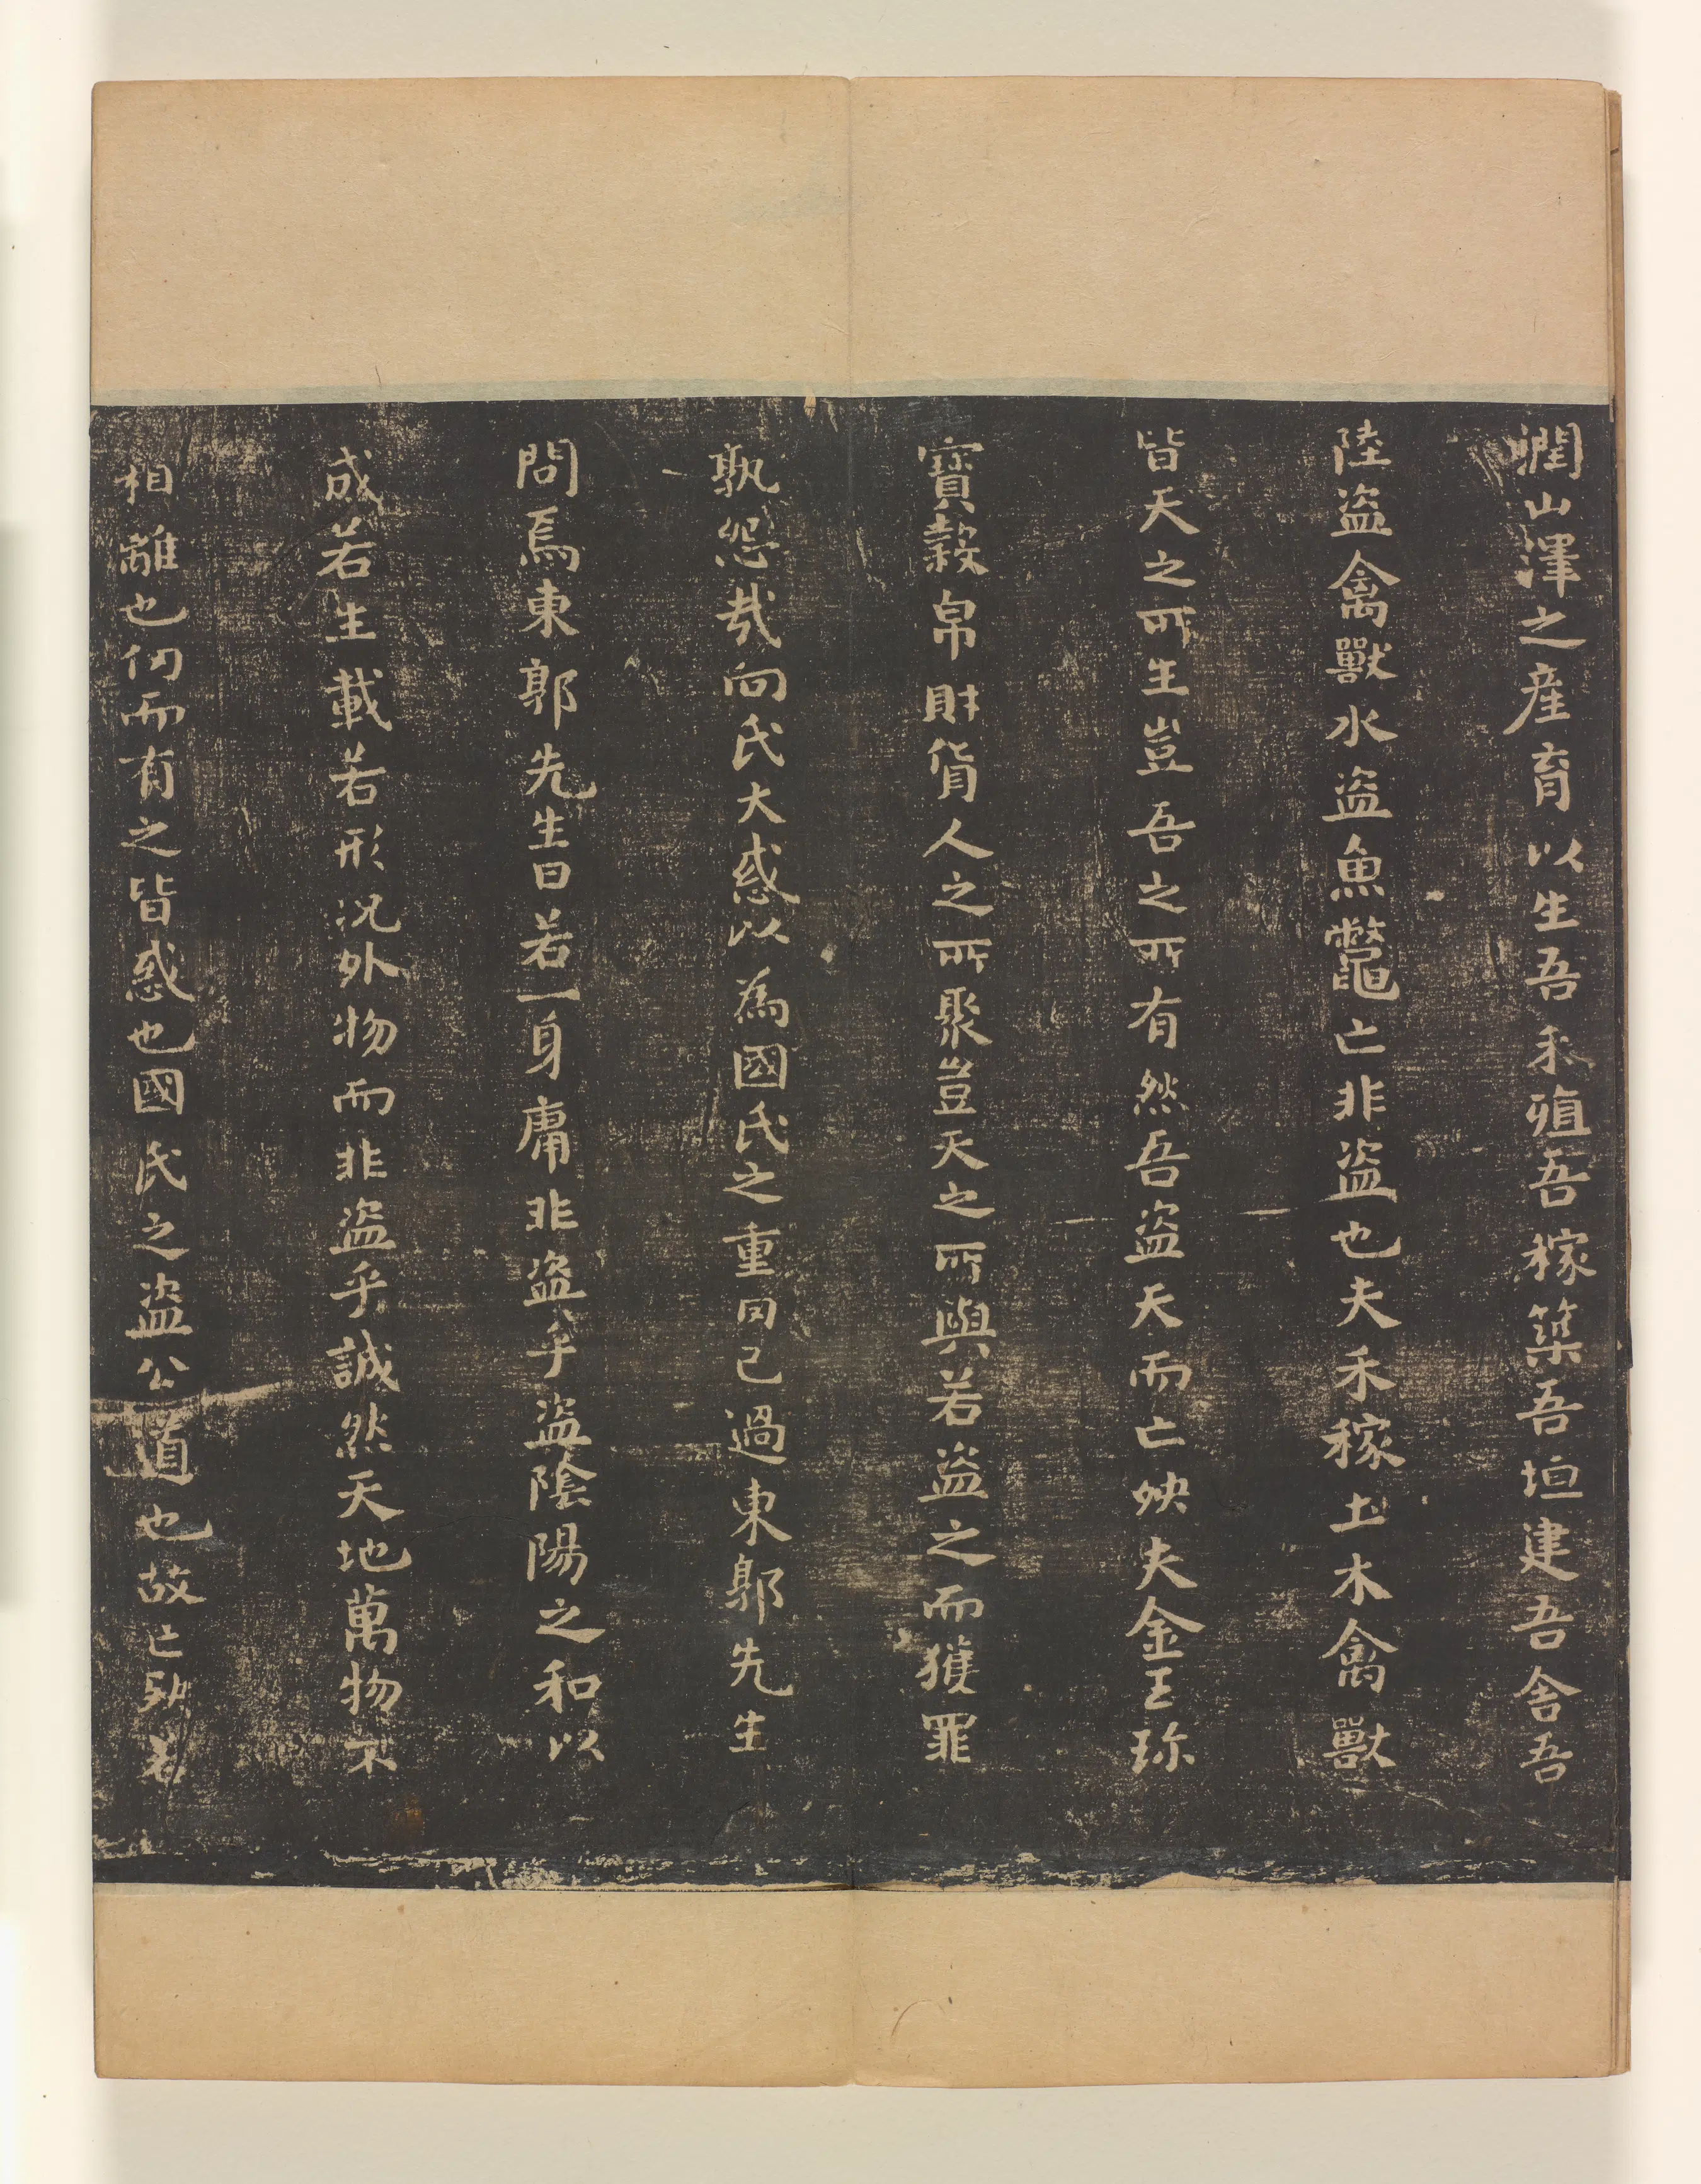 潤山澤之産育以生吾禾殖吾稼築吾垣建吾舍吾
陸盗禽獸水盗魚鼈亡非盗也夫禾稼土木禽獸
皆天之所生豈吾之所有然吾盗天而亡殃夫金玉珎
寶穀帛財貨人之所聚豈天之所與若盗之而獲罪
孰怨哉向氏大惑以為國氏之重罔己過東郭先生
問焉東郭先生曰若一身庸非盗乎盗陰陽之和以
成若生載若形况外物而非盗乎誠然天地萬物不
相離也仞而有之皆惑也國氏之盗公道也故亡殃若